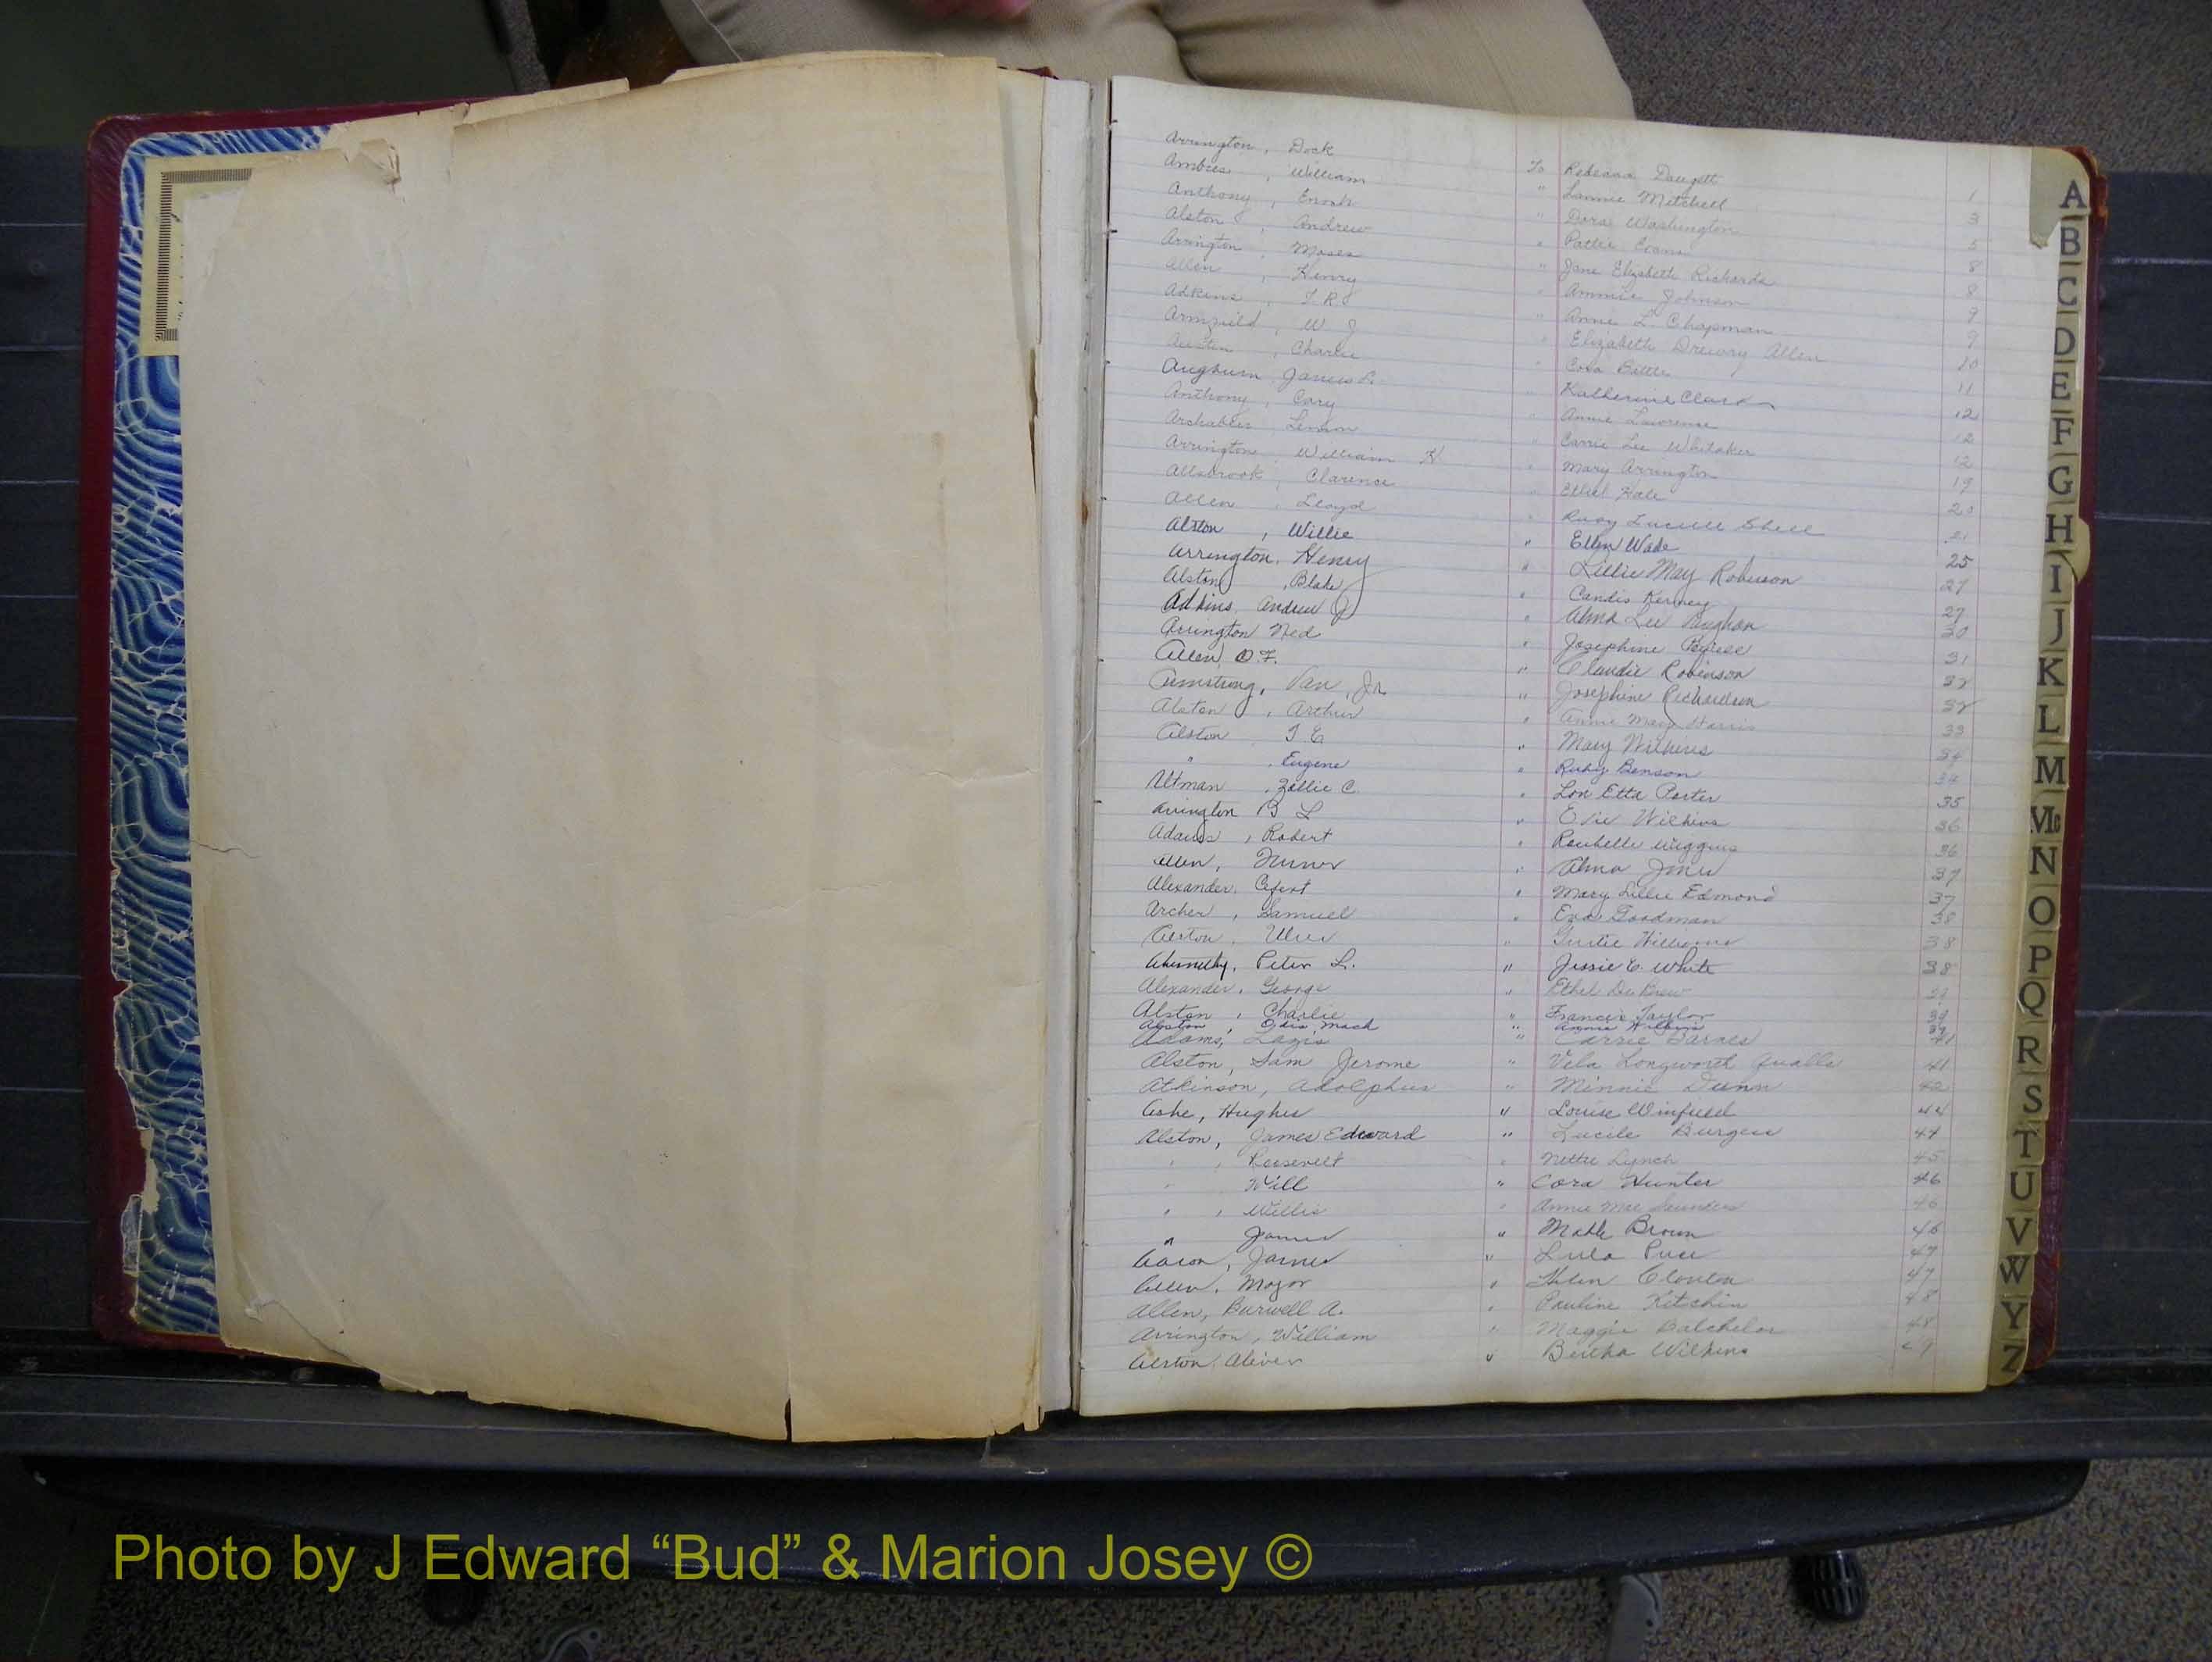 Arrington, Dock To Rebecca Daugett 1
Ambres, William " Lannie Mitchell 3
Anthony, Enoch " Dora Washington 5
Alston, Andrew " Pattie Evans 8
Arrington, Moses " Jane Elizabeth Richards 8
Allen, Henry " Ammie Johnson 9
Adkins, T. R. " Annie L. Chapman 9
Armfield, W J " Elizabeth Drewry Allen 10
Austin, Charlie " Cora Battle 11
Augburn James L. " Katherine Clark 12
Anthony, Cary " Annie Lawrence 12
Archables, Lemon " Carrie Lee Whitaker 12
Arrington, William H " Mary Arrington 19
Allsbrook, Clarence " Ethel Hale 20
Allen, Lloyd " Ruby Lucille Shell 21
Alston, Willie " Ellen Wade 25
Arrington, Henry " Lillie May Roberson 27
Alston, Blake " Candis Kerney 27
Adkins, Andrew J " Alma Lee Vaughan 30
Arrington Ned " Josephine 31
Allen, O. F. " Claudie Robinson 32
Armstrong, Van, Jr. " Josephine Richardson 32
Alston, Arthur " Annie May Harris 33
Alston T E " Mary Wilkins 34
" , Eugene " Ruby Benson 34
Altman, Zollie C. " Lon Etta Porter 35
Arrington B L " Evie Wilkins 36
Adams, Robert " Roubelle Wiggins 36
Allen, Turner " Alma Jones 37
Alexander, " Mary Lillie Edmond 37
Archer, Samuel " Eva Goodman 38
Alston, Ulus " Gertie Williams 38
Abernathy, Peter L. " Jessie E. White 38
Alexander, George " Ethel DeBrew 39
Alston, Charlie " Francis Taylor 39
Alston, Odis Mack " Annie Wilkins 39
Adams, Lazis " Carrie Barnes 41
Alston, Sam Jerome " Vela Longworth Qualls 41
Atkinson, Adolphus " Minnie Dunn 42
Ashe, Hughes " Louise Winfield 44
Alston, James Edward " Lucile Burgess 44
" , Roosevelt " Nettie Lynch 45
" , Will " Cora Hunter 46
" , Willis " Annie Mae Saunders 46
" James " Matth Brown 46
Aaron, James " Lula Price 47
Allen, Major " Helen Clonton 47
Allen, Burwell A. " Pauline Kitchin 48
Arrington, William " Maggie Batchelor 48
Alston, Oliver " Bertha Wilkins 49
A
B
C
D
E
F
G
H
I
J
K
L
M
Mc
N
O
P
Q
R
S
T
U
V
W
Y
Z
Photo by J Edward “Bud” & Marion Josey ©